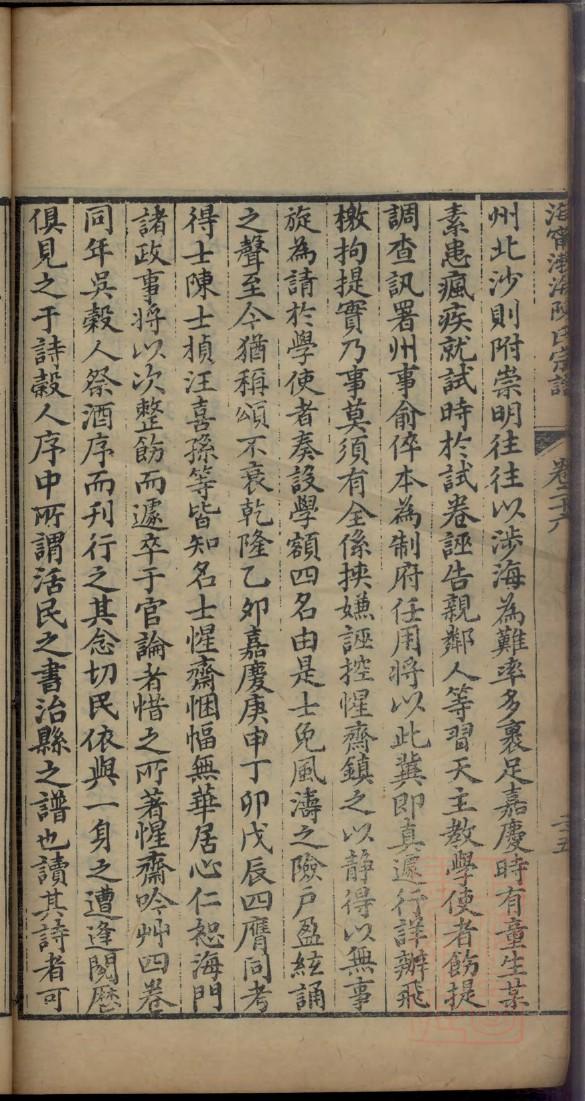 海寧渤海陳氏宗譜
卷二十六
二五
州北沙則附崇明往往以涉海為難率多裹足嘉慶時有童生某
素患瘋疾就試時於試卷誣告親鄰人等習天主教學使者飭提
調查訊署州事俞倅本為制府任用將以此冀即真遽行詳辦飛
檄拘提實乃事莫須有全係挾嫌誣控惺齋鎮之以静得以無事
旋為請於學使者奏設學額四名由是士免風濤之險戶盈絃誦
之聲至今猶稱頌不衰乾隆乙卯嘉慶庚申丁卯戊辰四膺同考
得士陳士楨汪喜孫等皆知名士惺齋悃愊無華居心仁恕海門
諸政事將以次整飭而遽卒于官論者惜之所著惺齋吟艸四卷
同年吳穀人祭酒序而刊行之其念切民依與一身之遭逢閱歷
俱見之于詩穀人序中所謂活民之書治縣之譜也讀其詩者可